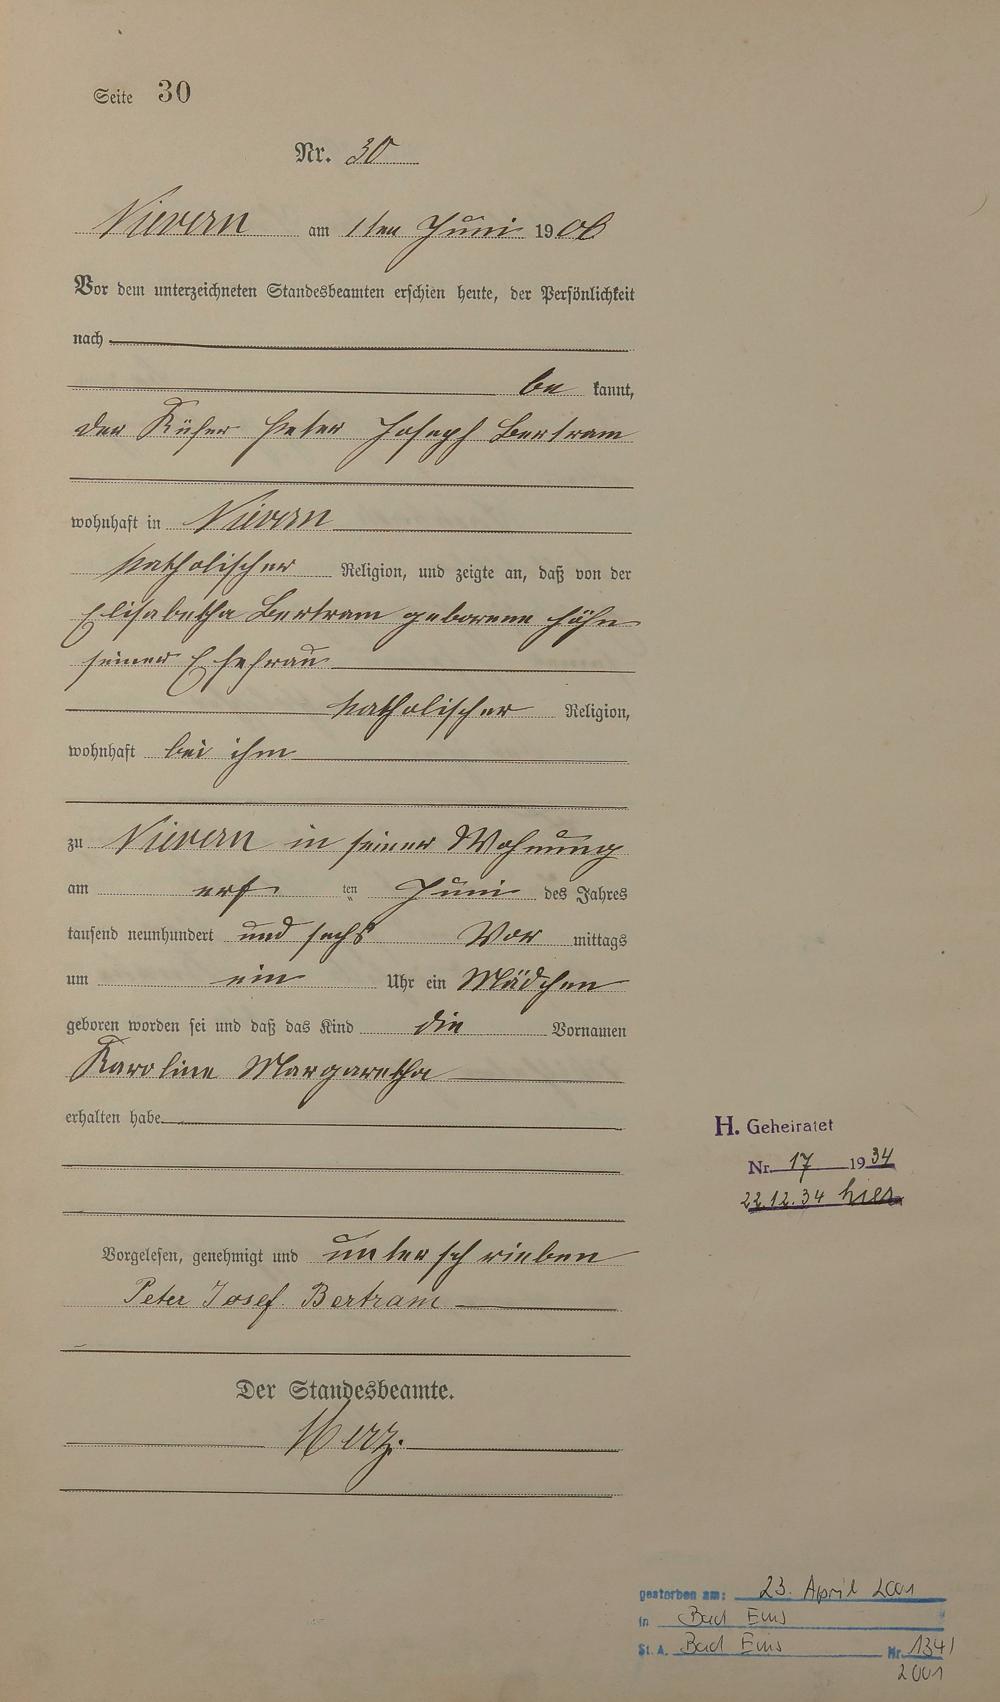 Seite 30
Nr. 30
Nievern am 1ten Juni 1906
Vor dem unterzeichneten Standesbeamten erschien heute, der Persönlichkeit
nach
be kannt,
der Küfer Peter Joseph Bertram
wohnhaft in Nievern
katholischer Religion, und zeigte an, daß von der
Elisabetha Bertram geborene Höhn
seiner Ehefrau
katholischer Religion,
wohnhaft bei ihm
zu Nievern in seiner Wohnung
am erst ten Juni des Jahres
tausend neunhundert und sechs Vor mittags
um ein Uhr ein Mädchen
geboren worden sei und daß das Kind die Vornamen
Karoline Margaretha
erhalten habe
Vorgelesen, genehmigt und unterschrieben
Peter Josef Bertram
Der Standesbeamte.
Merz.
H. Geheiratet
Nr. 17 1934
22.12.34 hier
gestorben am: 23. April 2001
in Bad Ems
St. A. Bad Ems Nr. 134/
2001